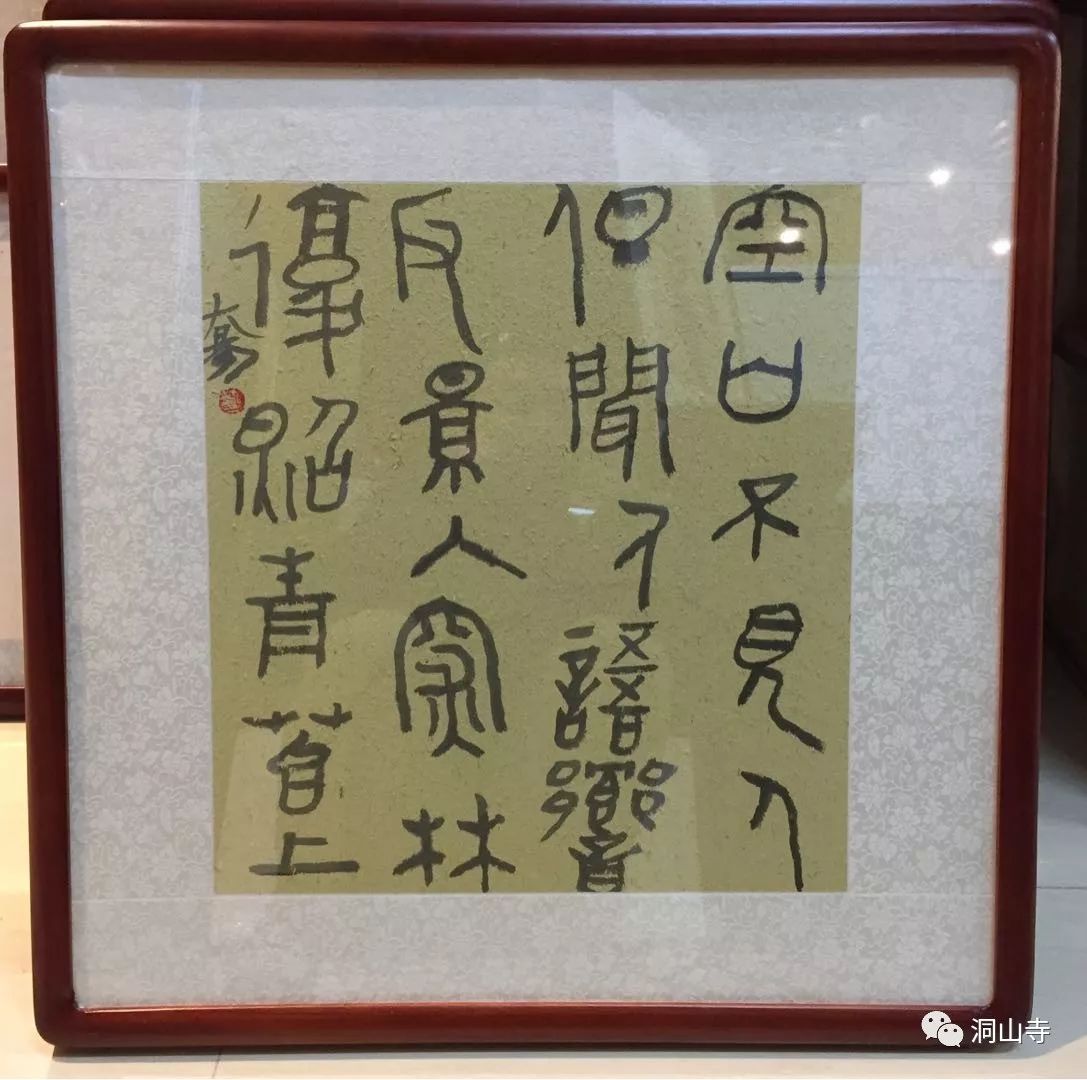 空山不見人
但聞人語響
反景入深林
復照青苔上
洞山寺